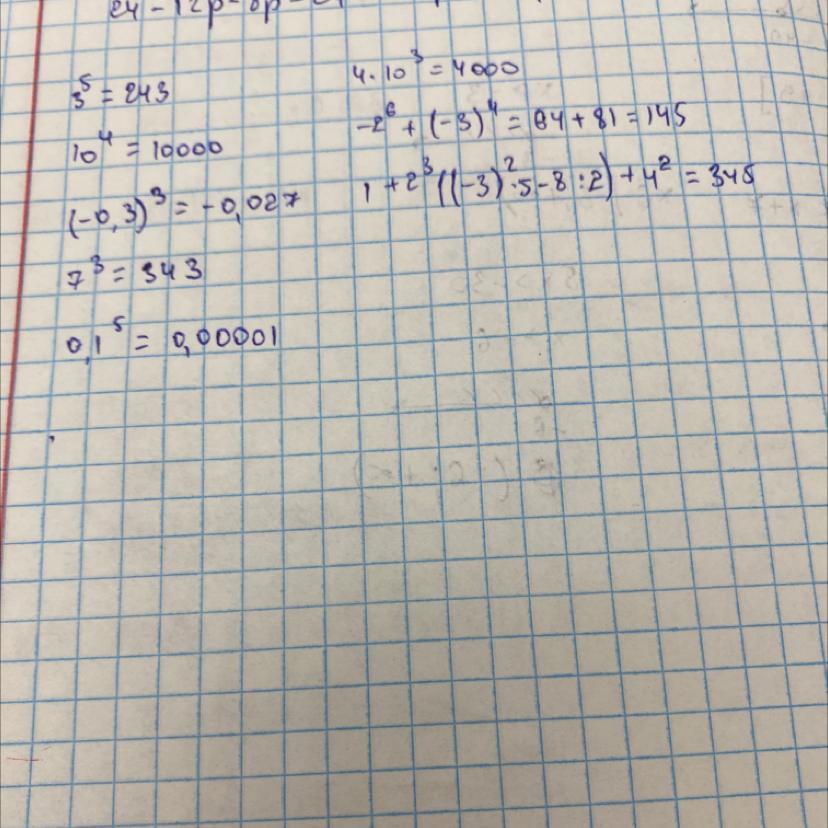 24 - 12p - 8p - 2
3⁵ = 243
10⁴ = 10000
(-0,3)³ = -0,027
7³ = 343
0,1⁵ = 0,00001
4·10³ = 4000
-2⁶ + (-3)⁴ = 64 + 81 = 145
1 + 2³((-3)²·5 - 8 : 2) + 4² = 345